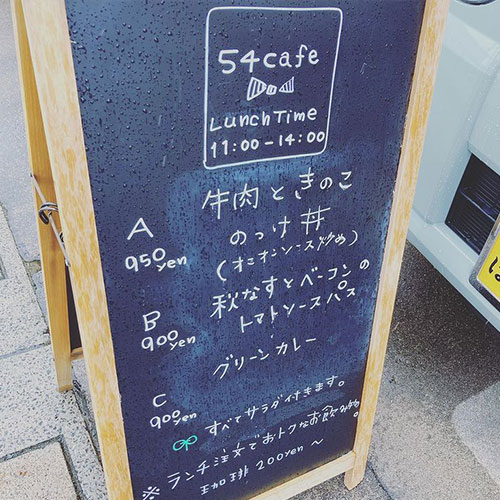 54cafe
Lunch Time
11:00-14:00
A
950yen
牛肉ときのこ
のっけ丼
(オニオンソース炒め)
B
900yen
秋なすとベーコンの
トマトソースパスタ
C
900yen
グリーンカレー
すべてサラダ付きます。
※ランチ注文でおトクなお飲み物。
珈琲 200yen ～